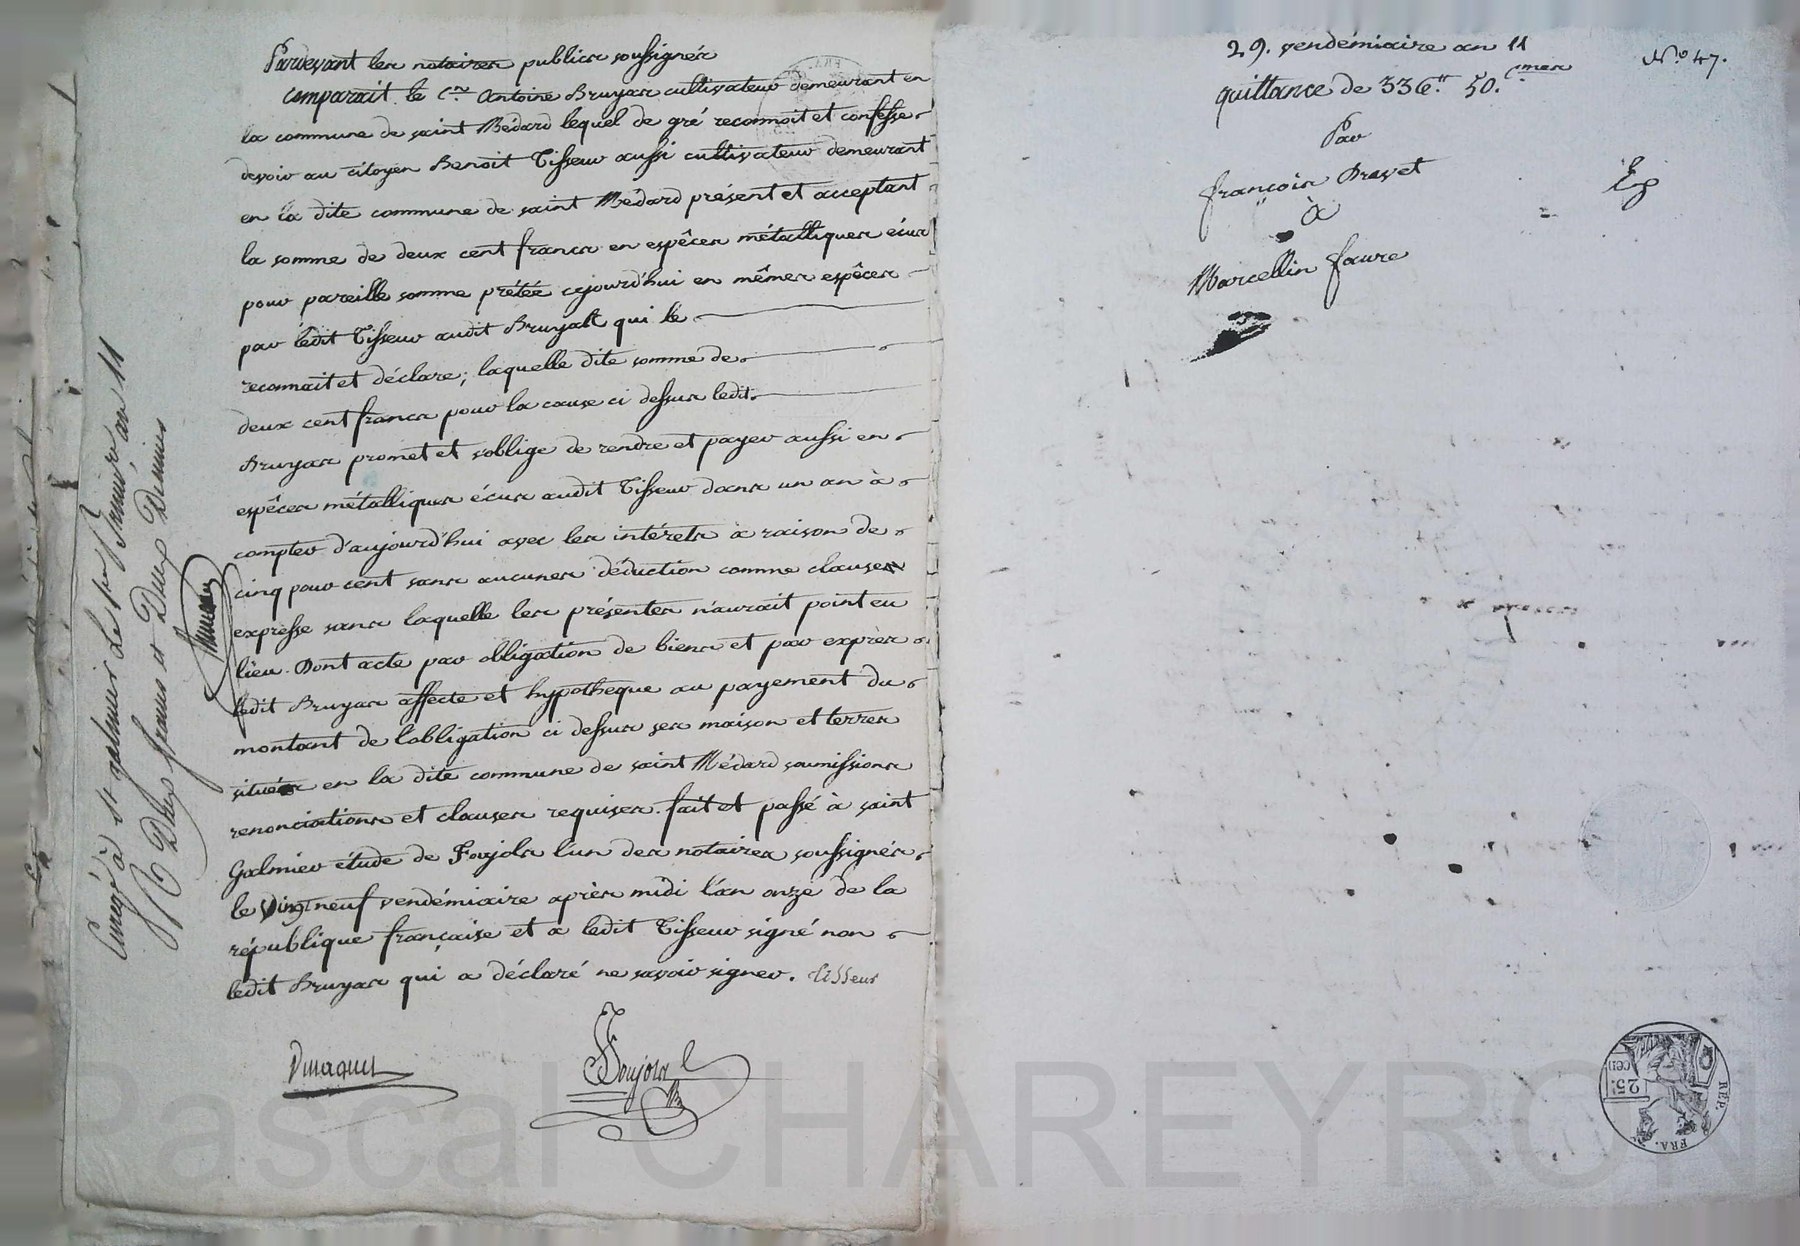 Pardevant les notaires publics soussignés
comparait le C.en Antoine Bruyas cultivateur demeurant en
la commune de saint Médard lequel de gré reconnoit et confesse
devoir au citoyen Benoit Tisseur aussi cultivateur demeurant
en la dite commune de saint Médard présent et acceptant
la somme de deux cent francs en espêces métalliques écus
pour pareille somme prétée cejourd'hui en mêmes espêces
par ledit Tisseur audit Bruyas qui le
reconnait et déclare; laquelle dite somme de
deux cent francs pour la cause ci dessus ledit
Bruyas promet et s'oblige de rendre et payer aussi en
espêces métalliques écus audit Tisseur dans un an à
compter d'aujourd'hui avec les intérets à raison de
cinq pour cent sans aucunes déduction comme clauses
expresse sans laquelle les présentes n'aurait point eu
lieu. Dont acte par obligation de biens et par exprès
ledit Bruyas affecte et hypotheque au payement du
montant de l'obligation ci dessus ses maison et terres
situées en la dite commune de saint Médard soumissions
renonciations et clauses requises. fait et passé à saint
Galmier étude de Foujols l'un des notaires soussignés
le vingt neuf vendémiaire après midi l'an onze de la
république française et a ledit Tisseur signé non
ledit Bruyas qui a déclaré ne savoir signer. tisseur
Foujols
Enregé à st galmier le 1er Brumaire an 11
Deux francs et Deux Decimes
29. vendémiaire an 11
N.o 47.
quittance de 336.tt 50.cmes
Par
françois Bravet
à
Marcellin faure
REP. FRA.
25.
cen
Pascal CHAREYRON